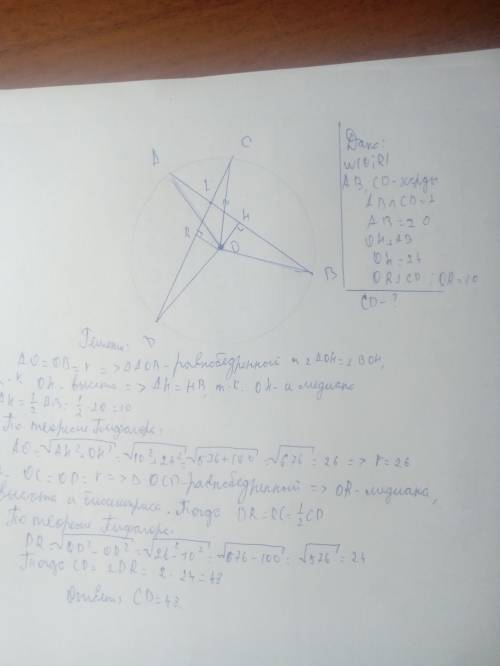 A
C
I
H
R
O
B
D
Дано:
w(O;R)
AB, CD-хорды
AB∩CD=I
AB=20
OH⊥AB
OH=24
OR⊥CD; OR=10
CD-?
Решение:
AO=OB=r => ΔAOB-равнобедренный
т.к. OH-высота => AH=HB, т.к. OH-и медиана
AH=½AB=½·20=10
По теореме Пифагора:
AO=√AH²+OH²=√10²+24²=√576+100=√676=26 => r=26
OC=OD=r => ΔOCD-равнобедренный => OR-медиана,
высота и биссектриса. Тогда DR=RC=½CD
По теореме Пифагора:
DR=√OD²-OR²=√26²-10²=√676-100=√576=24
Тогда CD=2DR=2·24=48
Ответ: CD=48